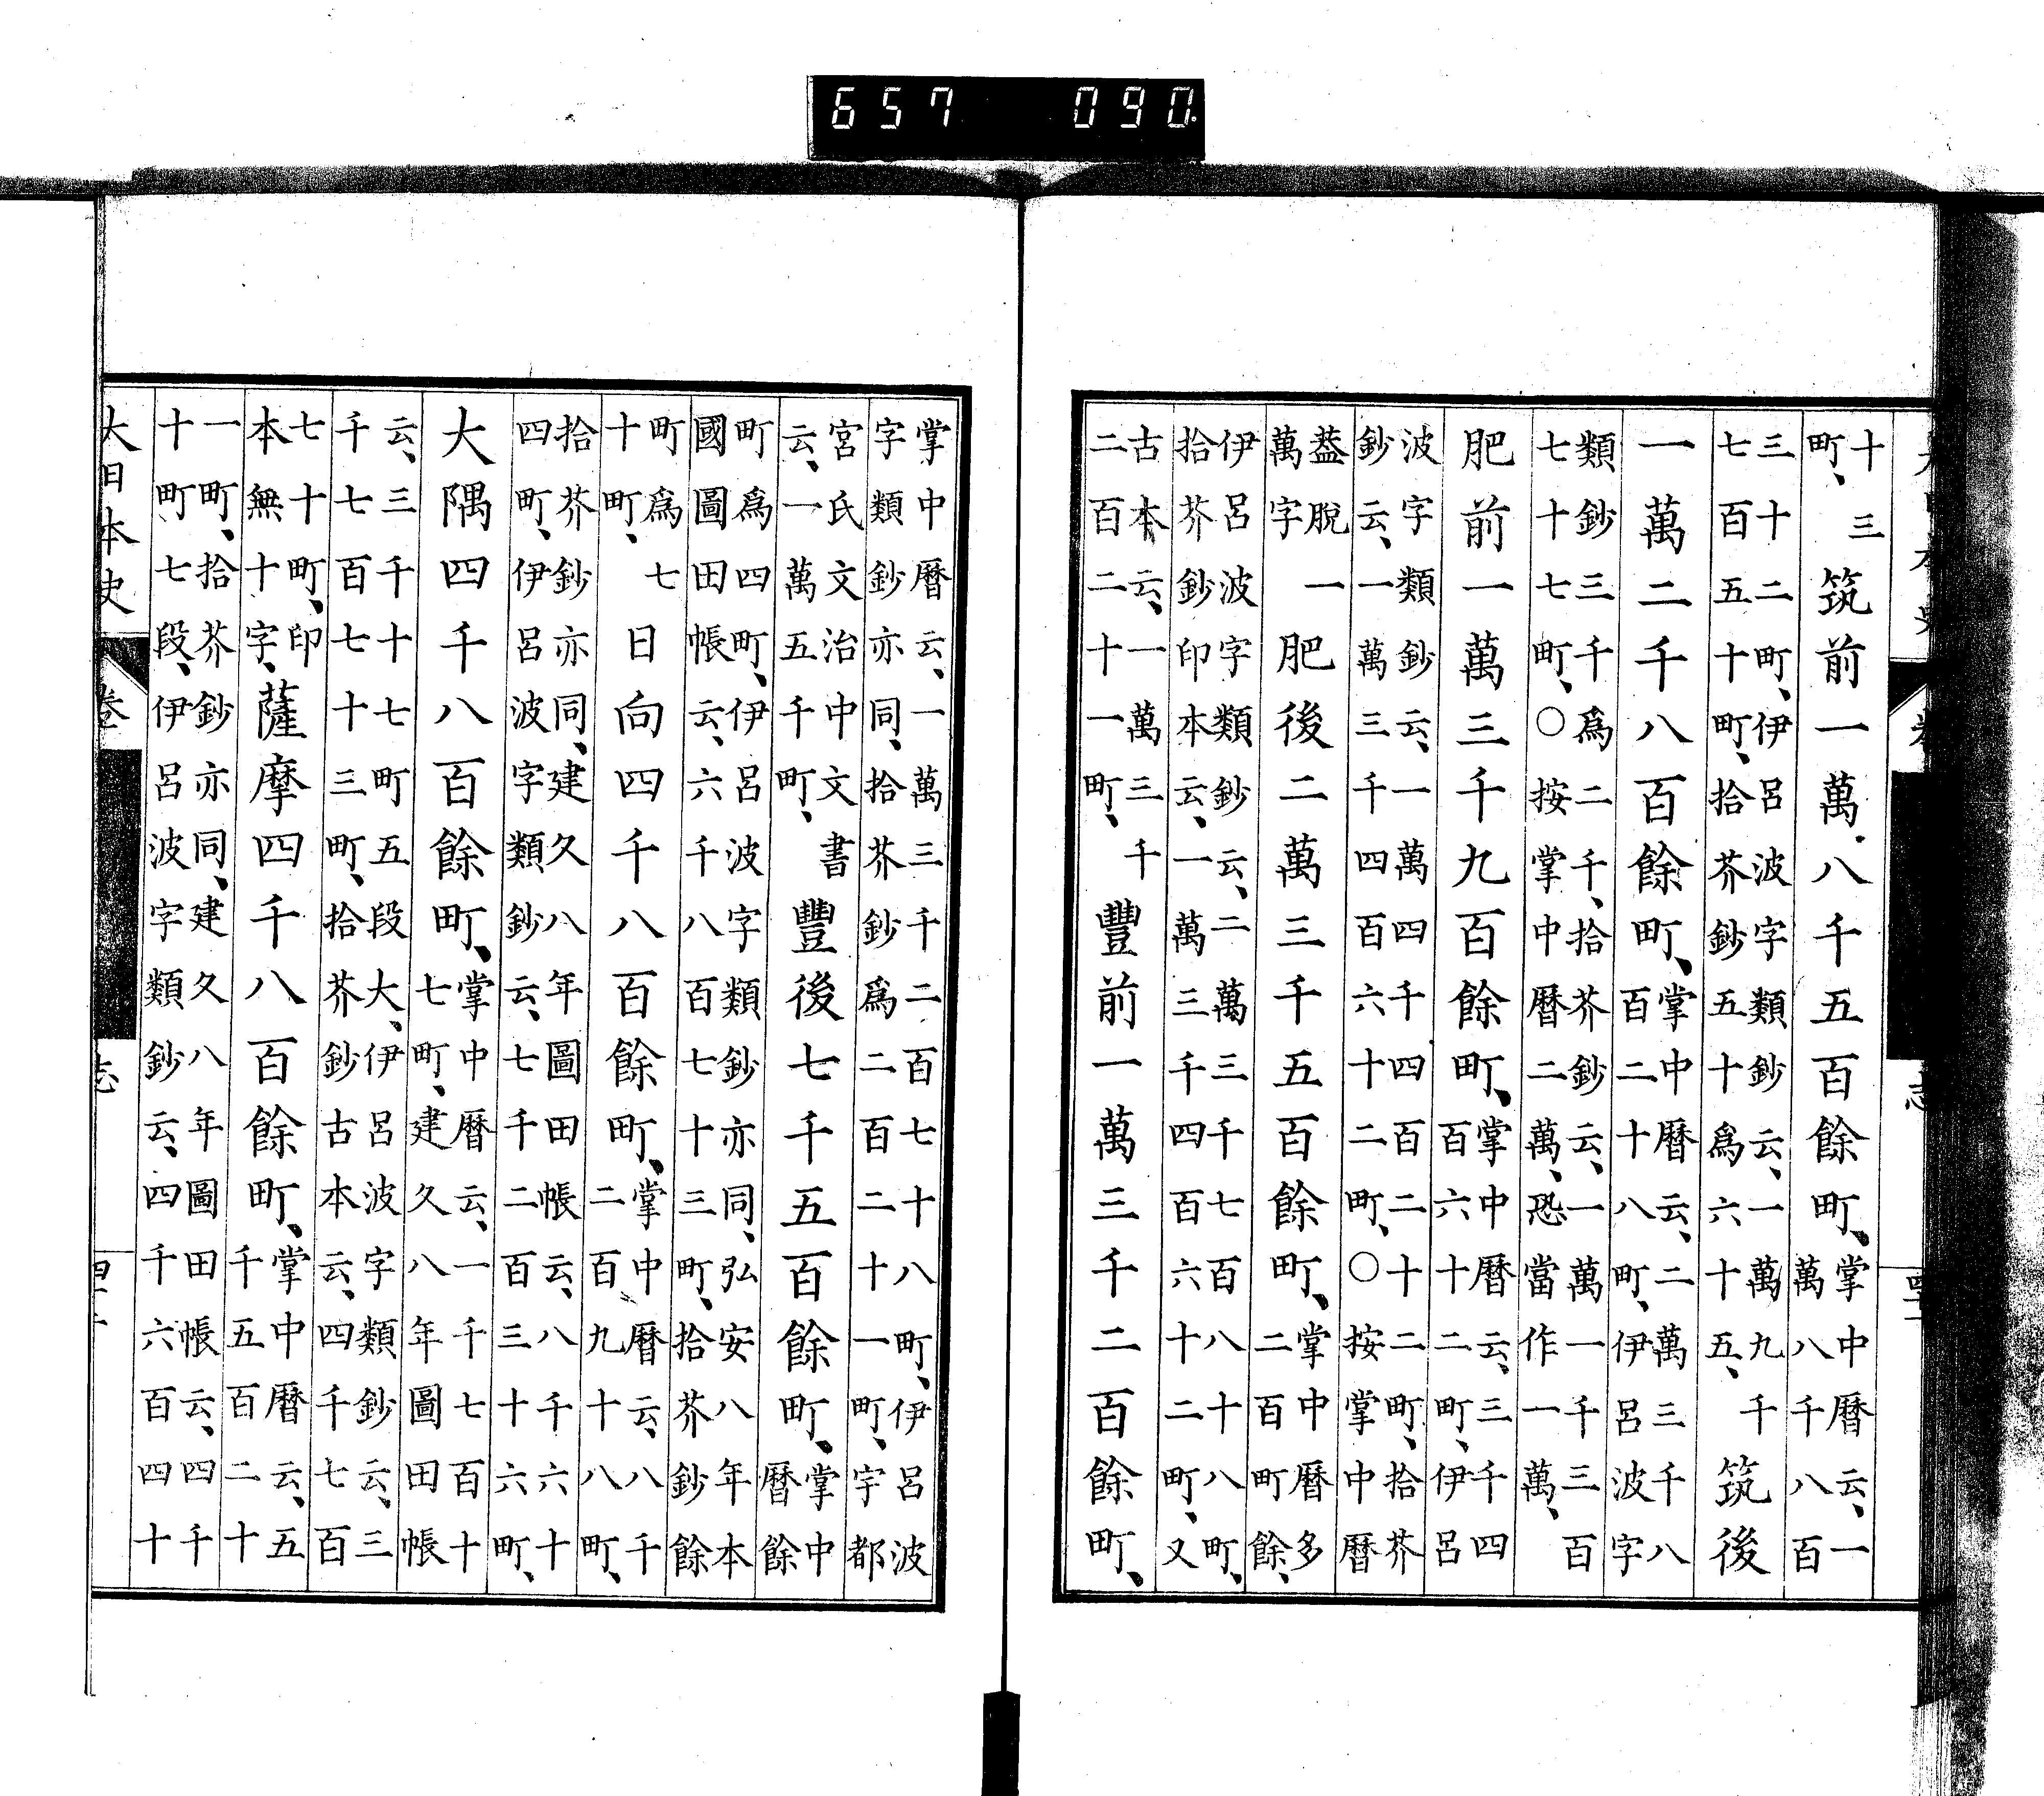 657 090
十三町、筑前一萬八千五百餘町、掌中暦云、一萬八千八百
三十二町、伊呂波字類鈔云、一萬九千七百五十町、拾芥鈔五十爲六十五、筑後
一萬二千八百餘町、掌中暦云、二萬三千八百二十八町、伊呂波字
類鈔三千爲二千、拾芥鈔云、一萬一千三百七十七町、○按掌中暦二萬、恐當作一萬、
肥前一萬三千九百餘町、掌中暦云、三千四百六十二町、伊呂
波字類鈔云、一萬四千四百二十二町、拾芥鈔云、一萬三千四百六十二町、○按掌中暦
葢脱一萬字肥後二萬三千五百餘町、掌中暦多二百町餘、
伊呂波字類鈔云、二萬三千七百八十八町、拾芥鈔印本云、一萬三千四百六十二町、又
古本云、一萬三千二百二十一町、豐前一萬三千二百餘町、
掌中暦云、一萬三千二百七十八町、伊呂波字類鈔亦同、拾芥鈔爲二百二十一町、宇都
宮氏文治中文書云、一萬五千町、豐後七千五百餘町、掌中暦餘
町爲四町、伊呂波字類鈔亦同、弘安八年本國圖田帳云、六千八百七十三町、拾芥鈔餘
町爲七十町、日向四千八百餘町、掌中暦云、八千二百九十八町、
拾芥鈔亦同、建久八年圖田帳云、八千六十四町、伊呂波字類鈔云、七千二百三十六町、
大隅四千八百餘町、掌中暦云、一千七百十七町、建久八年圖田帳
云、三千十七町五段大、伊呂波字類鈔云、三千七百七十三町、拾芥鈔古本云、四千七百
七十町、印本無十字、薩摩四千八百餘町、掌中暦云、五千五百二十
一町、拾芥鈔亦同、建久八年圖田帳云、四千十町七段、伊呂波字類鈔云、四千六百四十
大日本史 卷 志